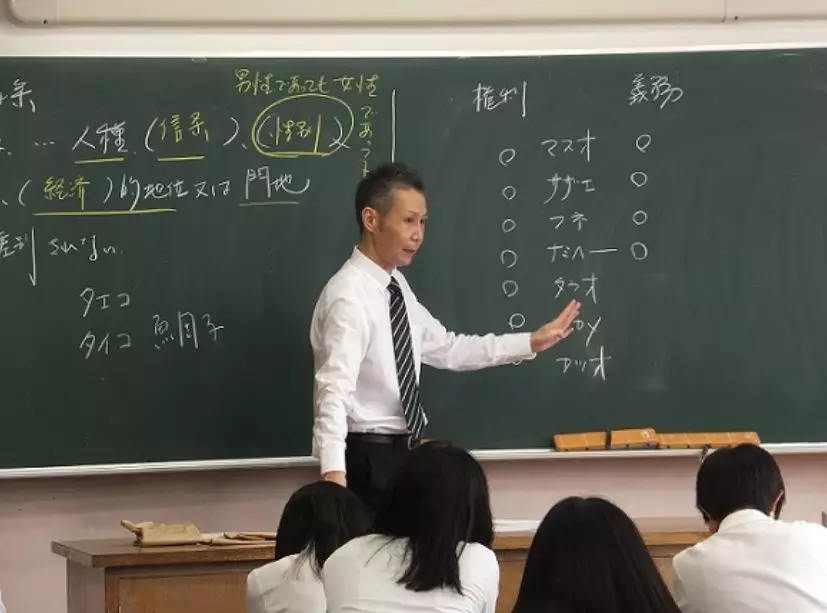 男性であっても女性であっ
… 人種、(信条)、(性別)、
、(経済)的地位又は門地
差別されない
タエコ
タイコ 魚貝子
権利 義務
○ マスオ ○
○ サザエ ○
○ フネ ○
○ ナミヘー ○
○ タラオ
○
カツオ